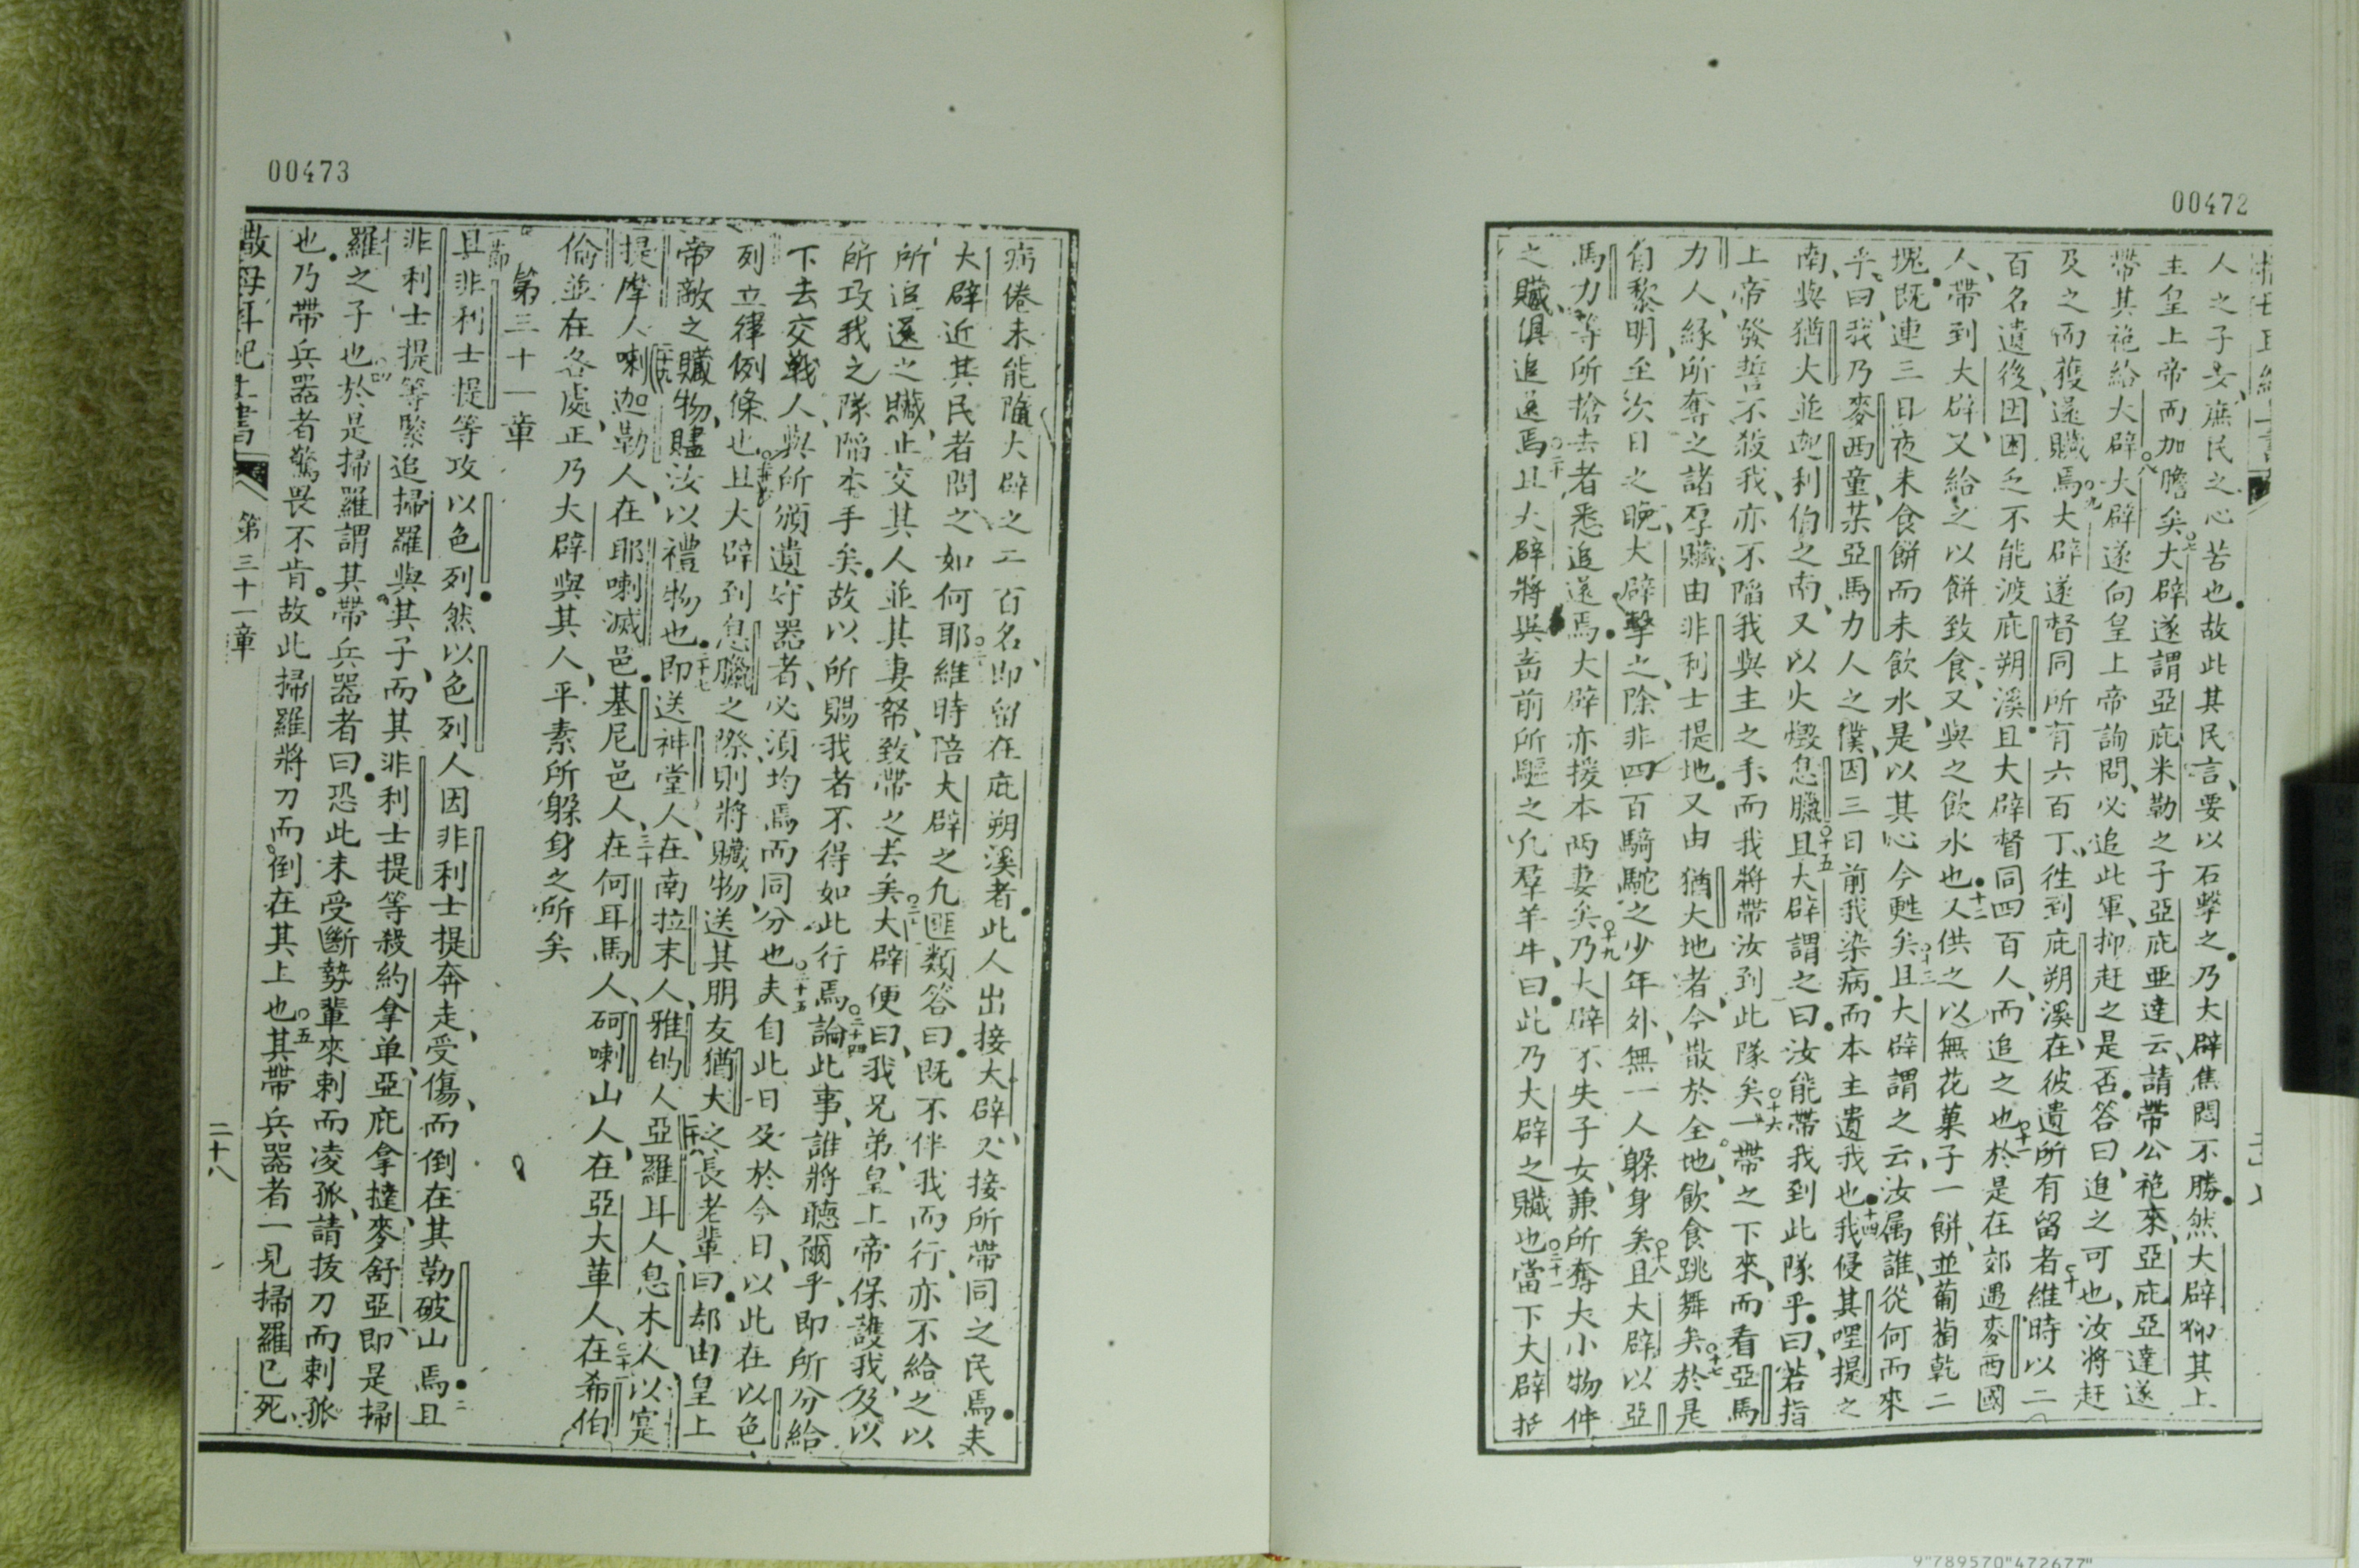 00472
人之子女、庶民之心苦也故此其民言、要以石擊之乃大辟焦悶不勝然大辟仰其上
主皇上帝而加膽矣大辟遂謂亞庇米勒之子亞庇亞達云請帶公袍來、亞庇亞達遂
帶其袍給大辟大辟遂向皇上帝詢問、必追此軍、抑赶之是否答曰、追之可也、汝將赶
及之而獲還贓焉大辟遂督同所有六百丁、徃到庇朔溪、在彼遺所有留者維時以二
百名遺後、因困乏不能渡庇朔溪且大辟督同四百人、而追之也於是在郊遇麥西國
人、帶到大辟、又給之以餅致食、又與之飲水也又供之以無花菓子一餅、並葡萄乾二
塊既連三日夜未食餅而未飲水、是以其心今甦矣且大辟謂之云、汝属誰、從何而來
乎曰、我乃麥西童、某亞馬力人之僕、因三日前我染病而本主遺我也我侵其哩提之
南、與猶大並迦利伯之南、又以火燬息臘且大辟謂之曰汝能帶我到此隊乎曰、若指
上帝發誓不殺我、亦不陷我與主之手、而我將帶汝到此隊矣一帶之下來、而看亞馬
力人、緣所奪之諸孚贓、由非利士提地又由猶大地者、今散於全地、飲食跳舞矣於是
自黎明至次日之晚、大辟擊之、除非四百騎駝之少年外、無一人躲身矣且大辟以亞
馬力等所搶去者悉追還焉大辟亦援本两妻矣乃大辟不失子女、兼所奪大小物件
之贓、俱追還焉且大辟將與畜前所驅之凡羣羊牛、曰此乃大辟之贓也當下大辟
00473
病倦未能隨大辟之二百名、即留在庇朔溪者此人出接大辟、又接所帶同之民焉夫
大辟近其民者問之如何耶維時陪大辟之凡匪類答曰既不伴我而行、亦不給之以
所追還之贓、止交其人並其妻帑、致帶之去矣大辟便曰、我兄弟、皇上帝保護我、及以
所攻我之隊陷本手矣故以所賜我者不得如此行焉論此事、誰將聽爾乎、即所分給
下去交戰人、與所頒遺守器者、必須均焉而同分也夫自此日及於今日、以此在以色
列立律例條也且大辟到息臘之際、則將贓物、送其朋友猶大之長老輩曰却由皇上
帝敵之贓物、賮汝以禮物也即送神堂人、在南拉末人、雅的人亞羅耳人、息木人以寔
提摩人喇迦勒人、在耶喇滅邑基尼邑人、在何耳馬人、砢喇山人、在亞大革人、在希伯
倫並在各處、正乃大辟與其人、平素所躲身之所矣
第三十一章
且非利士提等攻以色列然以色列人因非利士提奔走、受傷、而倒在其勒破山焉且
非利士提等緊追掃羅與其子、而其非利士提等殺約拿单、亞庇拿撻、麥舒亞、即是掃
羅之子也於是掃羅謂其帶兵器者曰恐此未受斷勢輩來刺而凌孤、請拔刀而刺孤
也乃帶兵器者驚畏不肯故此掃羅將刀而倒在其上也其帶兵器者一見掃羅已死、
第三十一章
二十八
9"789570"472677"